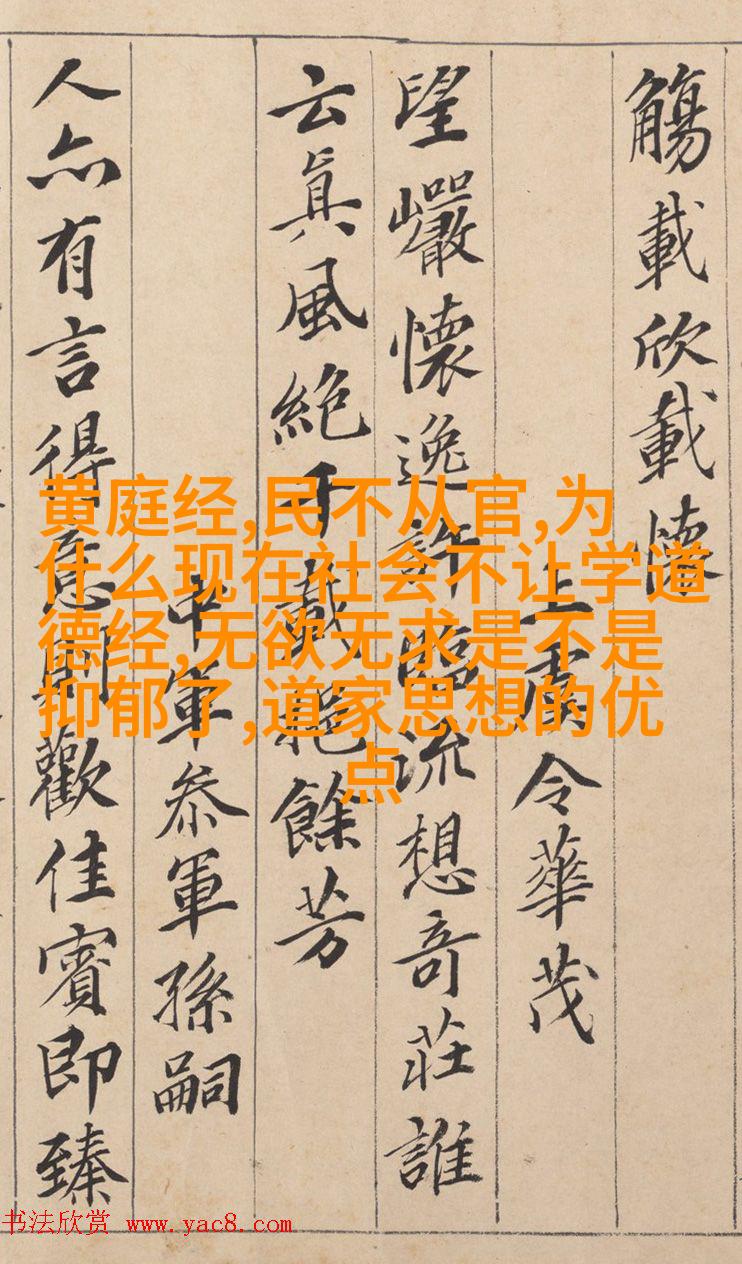 觴載欣載懷
上虞令華茂
望巖懷逸許臨流想奇莊誰
云真風絕千載挹餘芳
中軍参軍孫嗣
人亦有言得意則歡佳賓即臻
黄庭经,民不从官,为
什么现在社会不让学道
德经,无欲无求是不是
抑郁了,道家思想的优
点
书法欣赏 www.yac8.com